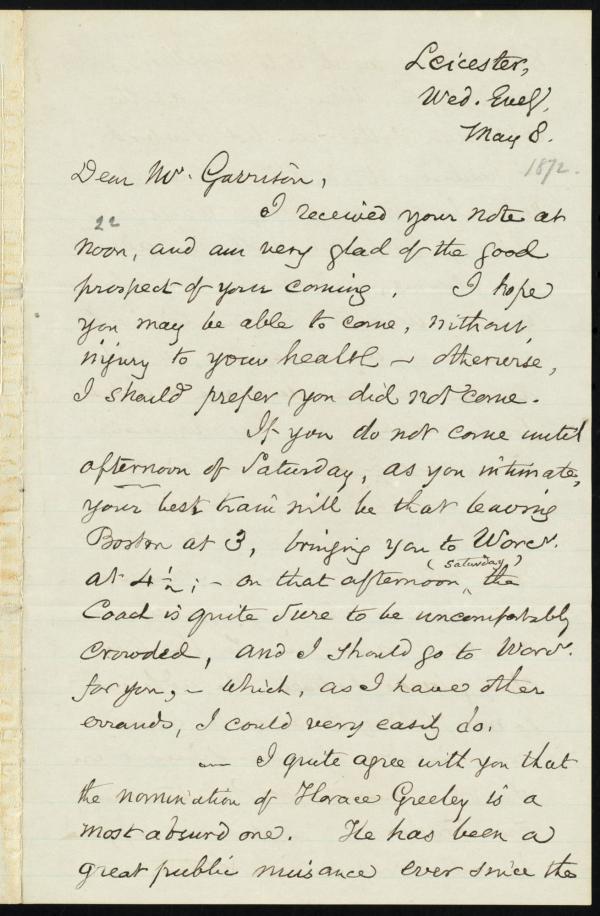 Leicester,
Wed. Eveg.
May 8.
1872.
Dear Mr. Garrison,
I received your note at
22
noon, and am very glad of the good
prospect of your coming. I hope
you may be able to come, without
injury to your health – otherwise,
I should prefer you did not come.
If you do not come until
afternoon of Saturday, as you intimate,
your best train will be that leaving
Boston at 3, bringing you to Worcr.
(Saturday)
at 4 1/2; – on that afternoon, the
Coach is quite sure to be uncomfortably
crowded, and I should go to Worcr.
for you, – which, as I have other
errands, I could very easily do.
— I quite agree with you that
the nomination of Horace Greeley is a
most absurd one. He has been a
great public nuisance ever since the